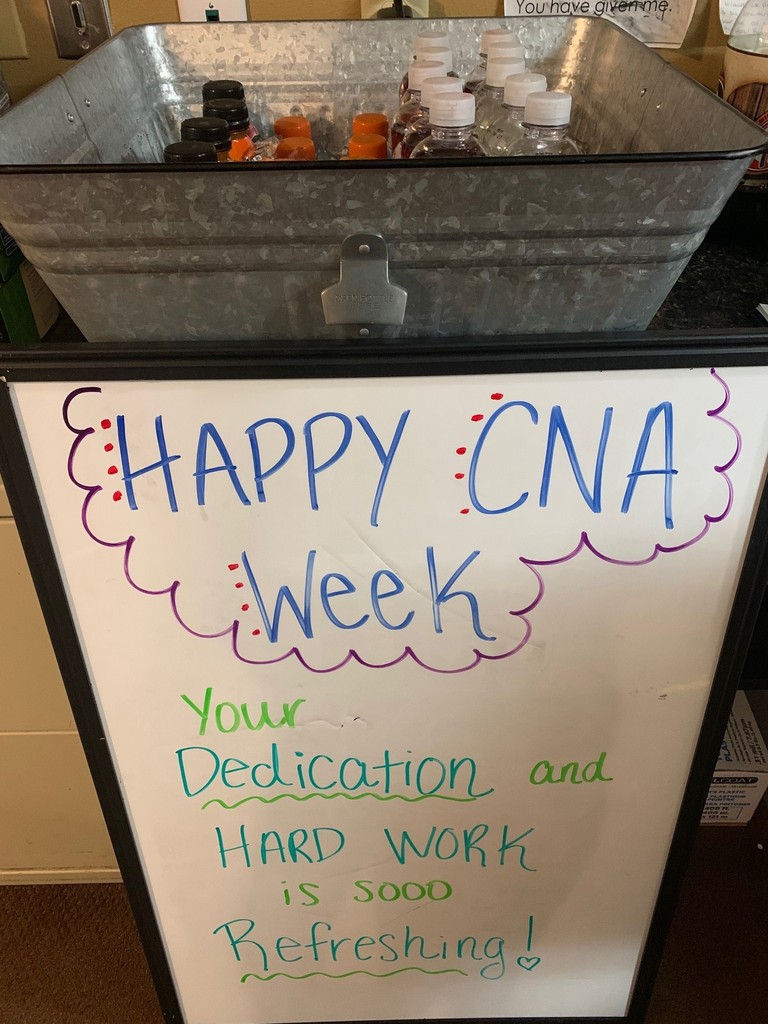 You have given me.
HAPPY CNA
Week
Your
Dedication and
HARD WORK
is sooo
Refreshing!